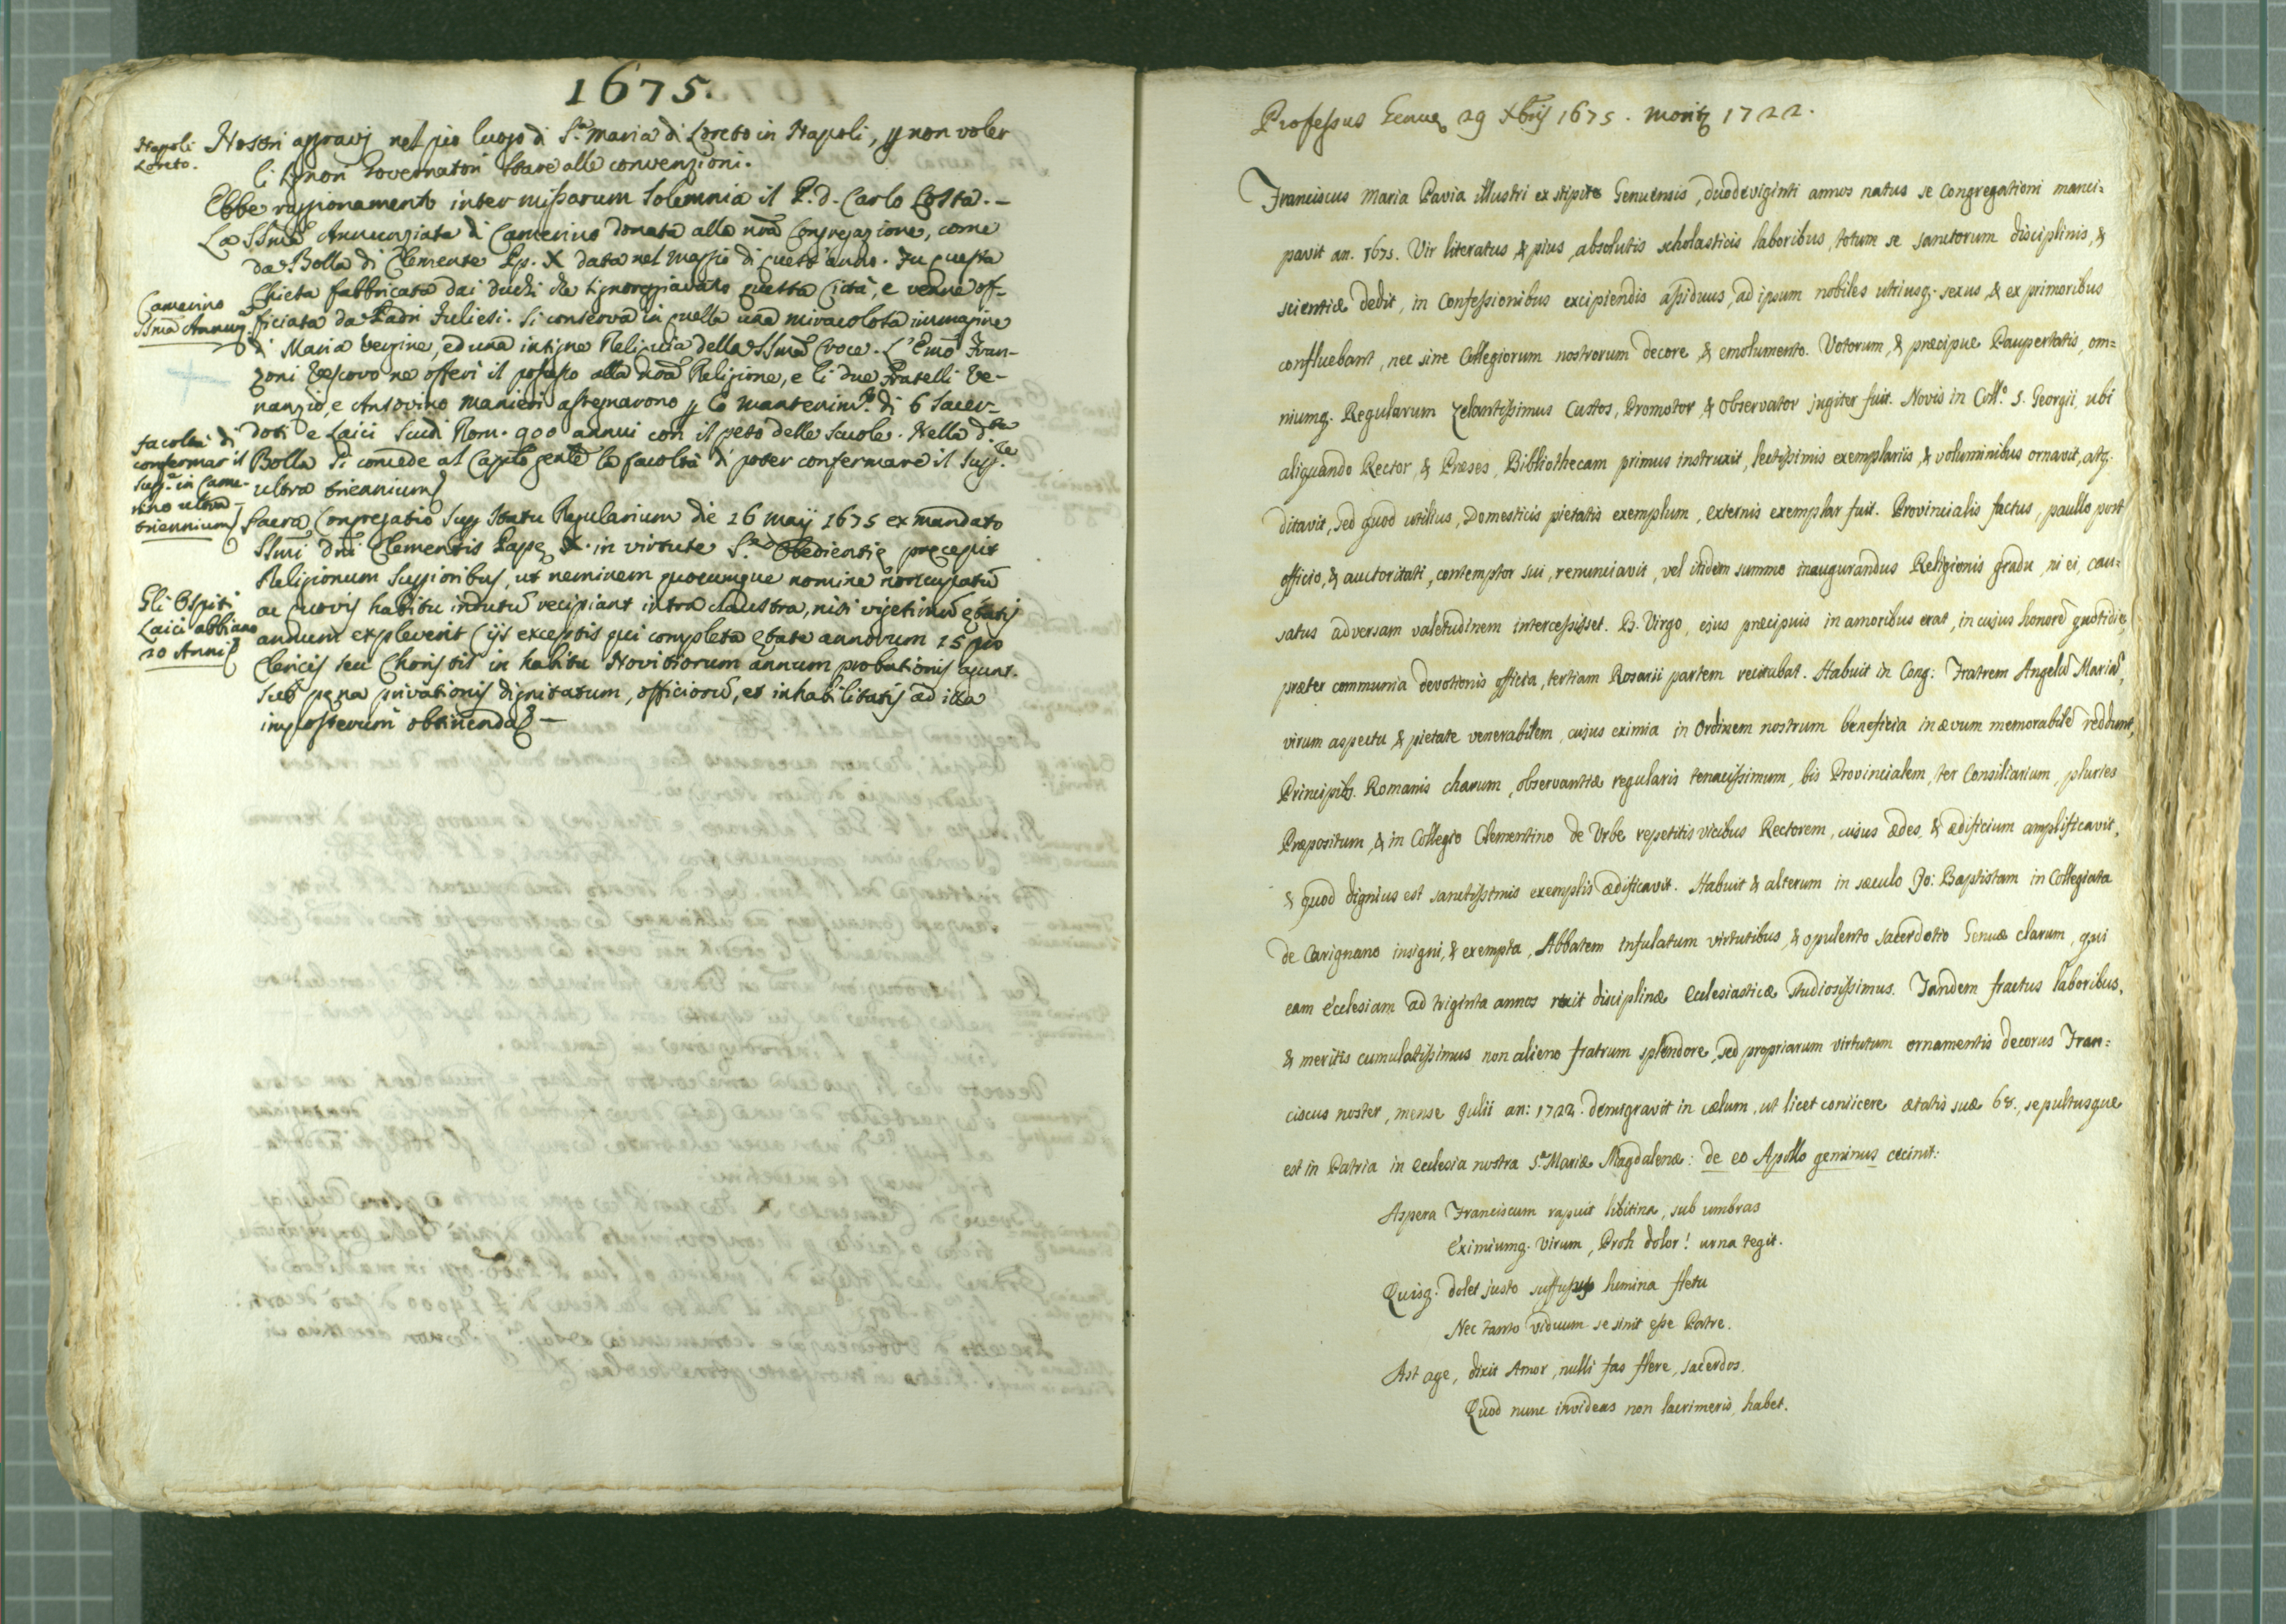 1675.
Napoli
Loreto.
Nostri aggravj nel pio luogo di S.ta Maria di Loreto in Napoli, p non voler
li Signori Governatori stare alle convenzioni.
Ebbe raggionamento inter missarum solemnia il P. d. Carlo Costa. –
La SSma Annunziata di Camerino donata alla nra Congregazione, come
da Bolla di Clemente Pp. X data nel Maggio di quest'anno. Fu questa
Camerino
SSma Annunz.
Chiesa fabbricata dai duchi che signoreggiavano questa Città, e venne of-
ficiata da Padri Iuliesi. Si conserva in quella una miracolosa immagine
di Maria Vergine, ed una insigne Reliquia della SSma Croce. L'Emo Fran-
zoni Vescovo ne offerì il possesso alla nra Religione, e li due Fratelli Ve-
nanzio, e Ansovino Manieri assegnarono p lo mantenim.to di 6 Sacer-
facoltà di
confermar il
Sup.re in Came-
rino ultra
triennium
doti e Laici Scudi Rom. 900 annui con il peso delle Scuole. Nella d.ta
Bolla si concede al Caplo genle la facoltà di poter confermare il Sup.re
ultra triennium
Sacra Congregatio sup Statu Regularium die 26 Maij 1675 ex mandato
SSmi dni Clementis Papę X. in virtute S.tæ Obedientię pręcepit
Religionum Suppioribus, ut neminem quocumque nomine noncupatu
Gli Ospiti
Laici abbiano
20 Anni
ac quovis habitu indutu recipiant intra claustra, nisi vigesimu ętatis
annum expleverit (ijs exceptis qui completa ętate annorum 15 pro
Clericis seu Choristis in habitu Novitiorum annum probationis agunt.
sub pęna privationis dignitatum, officioru, et inhabilitatis ad illa
imposterum obtinenda –
Professus Genuę 29 Xbris 1675. moritr 1722.
Franciscus Maria Pavia illustri ex stipite Genuensis, duodeviginti annos natus se Congregationi manci=
pavit an. 1675. Vir literatus, & pius, absolutis scholasticis laboribus, totum se sanctorum disciplinis, &
scientiæ dedit, in Confessionibus excipiendis assiduus, ad ipsum nobiles utriusq. sexus, & ex primoribus
confluebant, nec sine Collegiorum nostrorum decore & emolumento. Votorum, & præcipue Paupertatis, om=
niumq. Regularum zelantissimus Custos, Promotor & Observator jugiter fuit. Novis in Coll.o S. Georgii, ubi
aliquando Rector, & Præses, Bibliothecam primus instruxit, lectissimis exemplariis, & voluminibus ornavit, atq.
ditavit, sed quod utilius, Domesticis pietatis exemplum, externis exemplar fuit. Provincialis factus, paullo post
officio, & auctoritati, contemptor sui, renunciavit, vel itidem summo inaugurandus Religionis gradu, ni ei, cau=
satus adversam valetudinem intercessisset. B. Virgo, ejus præcipuis in amoribus erat, in cujus honore quotidie,
præter communia devotionis officia, tertiam Rosarii partem recitabat. Habuit in Cong: Fratrem Angelu Mariu,
virum aspectu & pietate venerabilem, cujus eximia in Ordinem nostrum beneficia in ævum memorabile reddunt,
Principib. Romanis charum, observantiæ regularis tenacissimum, bis Provincialem, ter Consiliarium, pluries
Præpositum, & in Collegio Clementino de Urbe repetitis vicibus Rectorem, cujus ædes, & ædificium amplificavit,
& quod dignius est sanctissimis exemplis ædificavit. Habuit & alterum in sæculo Jo: Baptistam in Collegiata
de Carignano insigni, & exempta, Abbatem Infulatum virtutibus, & opulento sacerdotio Genuæ clarum, qui
eam ecclesiam ad triginta annos rexit disciplinæ ecclesiasticæ studiosissimus. Tandem fractus laboribus,
& meritis cumulatissimus non alieno fratrum splendore, sed propriarum virtutum ornamentis decorus Fran=
ciscus noster, mense Julii an: 1722. demigravit in cælum, ut licet coniicere ætatis suæ 68., sepultusque
est in Patria in ecclesia nostra S.æ Mariæ Magdalenæ: de eo Apollo geminus cecinit:
Aspera Franciscum rapuit libitina, sub umbras
Eximiumq. virum, Proh dolor! urna tegit.
Quisq. dolet justo suffusus lumina fletu
Nec tanto viduum se sinit esse Patre.
Ast age, dixit Amor, nulli fas flere, sacerdos.
Quod nunc invideas non lacrimeris, habet.